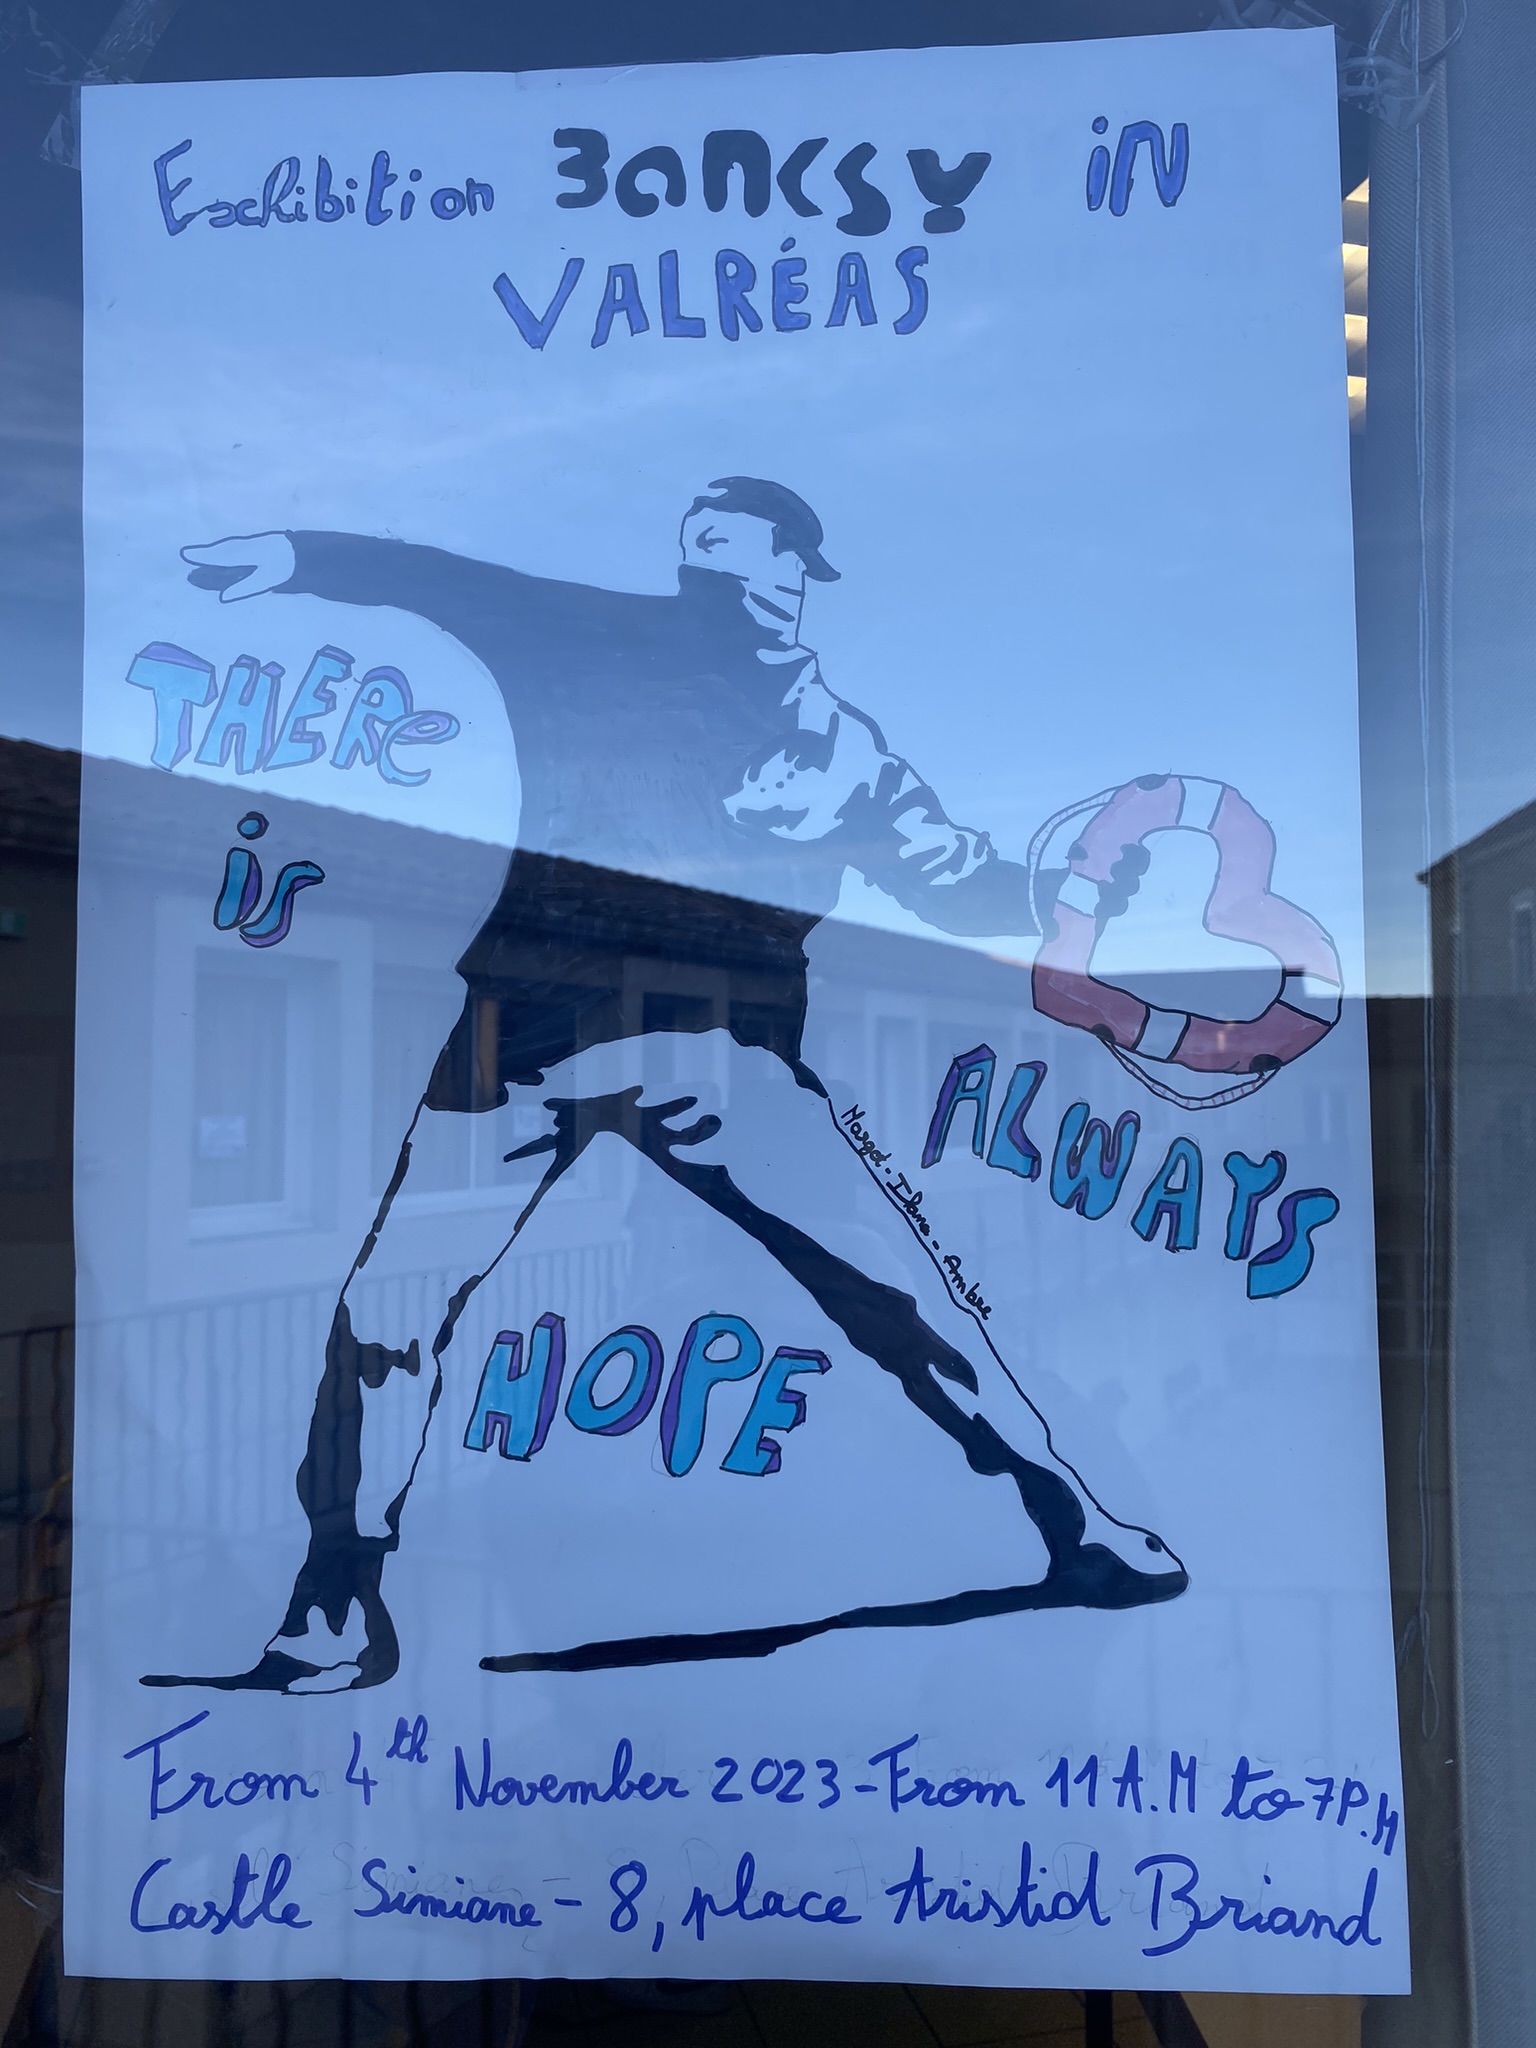 Exhibition Banksy in
VALRÉAS
THERe
is
ALWAYS
Margot - Ilana - Ambre
HOPE
From 4th November 2023 - From 11 A.M to 7P.M
Castle Simiane - 8, place Aristid Briand